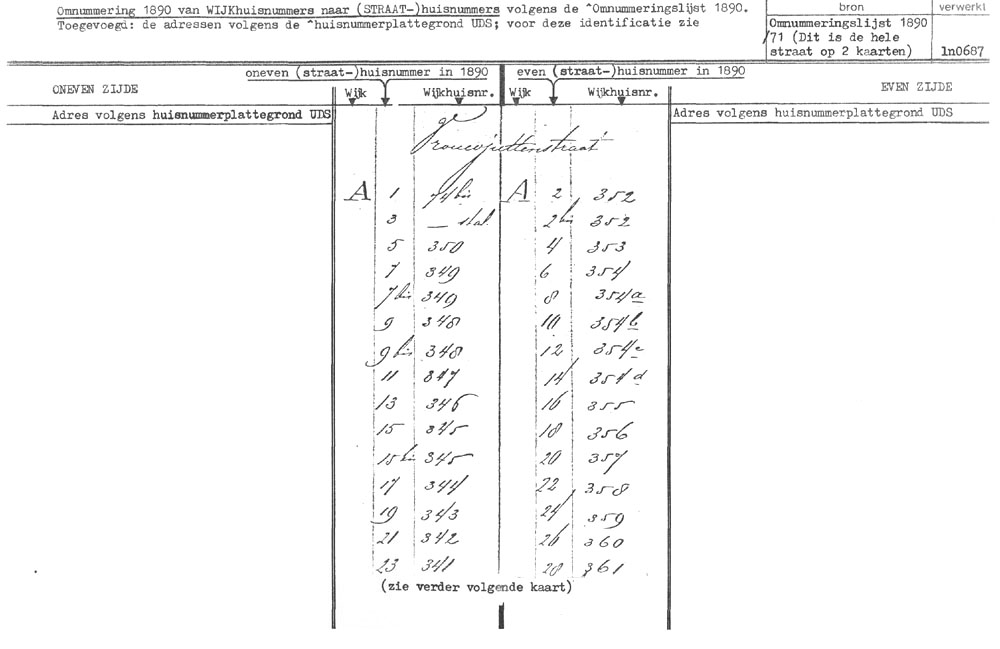 Omnummering 1890 van WIJKhuisnummers naar (STRAAT-)huisnummers volgens de ^Omnummeringslijst 1890.
Toegevoegd: de adressen volgens de ^huisnummerplattegrond UDS; voor deze identificatie zie
bron verwerkt
Omnummeringslijst 1890
/71 (Dit is de hele
straat op 2 kaarten) ln0687
oneven (straat-)huisnummer in 1890 even (straat-)huisnummer in 1890
ONEVEN ZIJDE Wijk Wijkhuisnr. Wijk Wijkhuisnr. EVEN ZIJDE
Adres volgens huisnummerplattegrond UDS Adres volgens huisnummerplattegrond UDS
Brouwjuttenstraat
A 1 74 bis A 2 352
3 — stal 2 bis 352
5 350 4 353
7 349 6 354
7 bis 349 8 354a
9 348 10 354b
9 bis 348 12 354c
11 347 14 354d
13 346 16 355
15 345 18 356
15 bis 345 20 357
17 344 22 358
19 343 24 359
21 342 26 360
23 341 28 361
(zie verder volgende kaart)